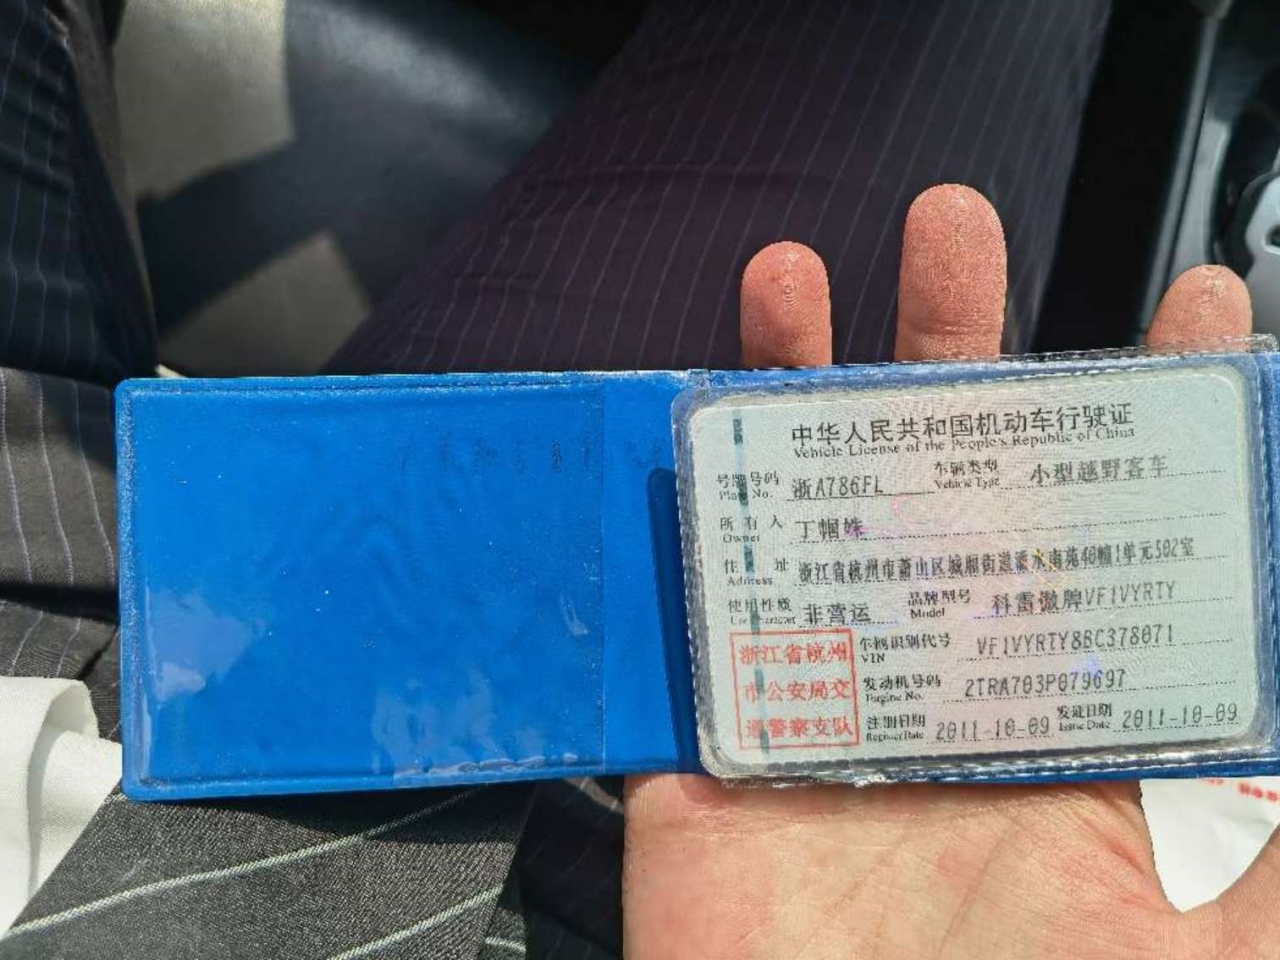 中华人民共和国机动车行驶证
Vehicle License of the People's Republic of China
号牌号码 浙A786FL 车辆类型 小型越野客车
Plate No. Vehicle Type
所有人 丁帼姝
Owner
住址 浙江省杭州市萧山区城厢街道潘水南苑40幢1单元502室
Address
使用性质 非营运 品牌型号 科雷傲牌VF1VYRTY
Use Character Model
浙江省杭州 车辆识别代号 VF1VYRTY86C378071
VIN
市公安局交 发动机号码 2TRA703P079697
Engine No.
通警察支队 注册日期 2011-10-09 发证日期 2011-10-09
Register Date Issue Date